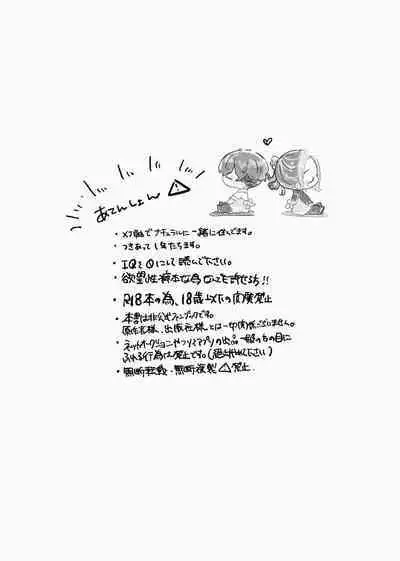 あてんしょん
・×7軸でナチュラルに一緒に住んでます。
・つきあって1年たちます。
・IQを0にして読んで下さい。
・欲望性癖本な為なんでも許せる方!!
・R18本の為、18歳以下の閲覧禁止
・本書は非公式ファンブックです。
原作者様、出版社様とは一切関係ございません。
・ネットオークションやフリマアプリの出品、一般の方の目に
ふれる行為は禁止です。(
ください)
・無断転載・無断複製 禁止